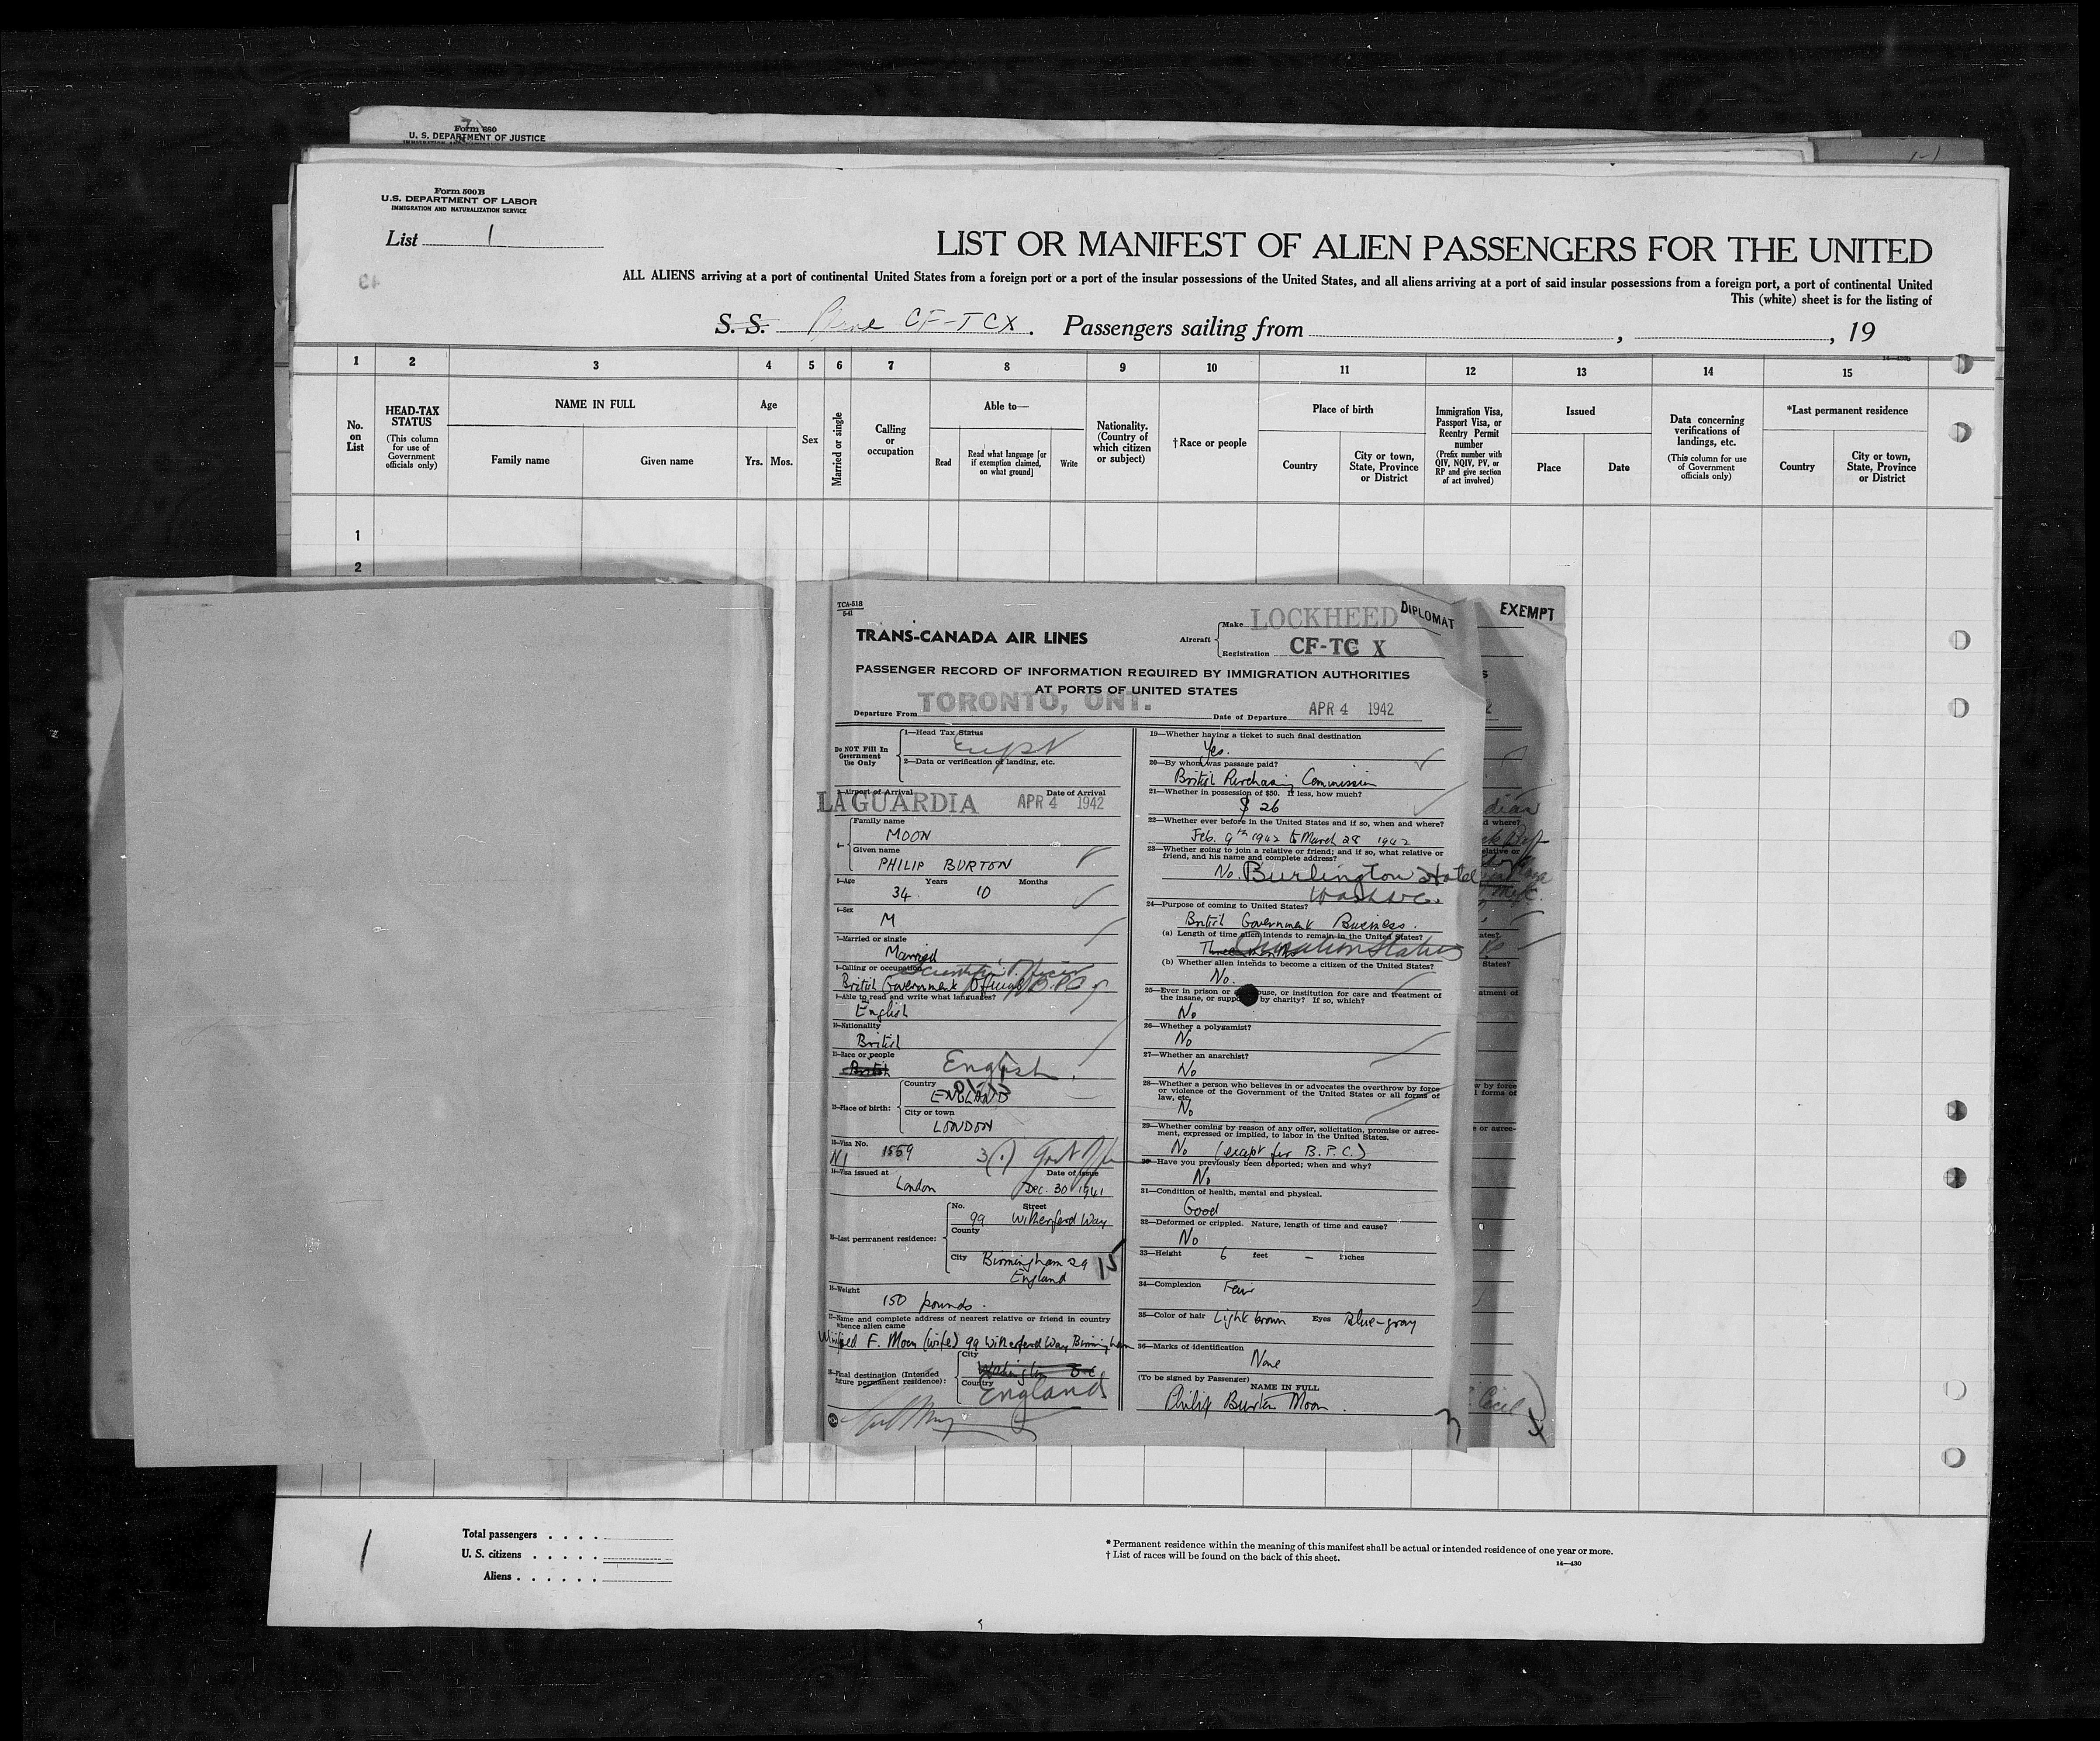 Form 680
U. S. DEPARTMENT OF JUSTICE
Form 500 B
U.S. DEPARTMENT OF LABOR
IMMIGRATION AND NATURALIZATION SERVICE
List 1
49
LIST OR MANIFEST OF ALIEN PASSENGERS FOR THE UNITED
ALL ALIENS arriving at a port of continental United States from a foreign port or a port of the insular possessions of the United States, and all aliens arriving at a port of said insular possessions from a foreign port, a port of continental United
This (white) sheet is for the listing of
S. S. Plane CF-TCX. Passengers sailing from , , 19
1 2 3 4 5 6 7 8 9 10 11 12 13 14 15
No. on List
HEAD-TAX STATUS
(This column for use of Government officials only)
NAME IN FULL
Family name Given name
Age
Yrs. Mos.
Sex
Married or single
Calling or occupation
Able to—
Read
Read what language [or if exemption claimed, on what ground]
Write
Nationality. (Country of which citizen or subject)
†Race or people
Place of birth
Country
City or town, State, Province or District
Immigration Visa, Passport Visa, or Reentry Permit number
(Prefix number with QIV, NQIV, PV, or RP and give section of act involved)
Issued
Place Date
Data concerning verifications of landings, etc.
(This column for use of Government officials only)
*Last permanent residence
Country
City or town, State, Province or District
1
2
TCA-518
5-41
TRANS-CANADA AIR LINES
Aircraft
Make LOCKHEED
Registration CF-TC X
DIPLOMAT
EXEMPT
PASSENGER RECORD OF INFORMATION REQUIRED BY IMMIGRATION AUTHORITIES
AT PORTS OF UNITED STATES
Departure From TORONTO, ONT. Date of Departure APR 4 1942
Do NOT Fill In
Government
Use Only
1—Head Tax Status
2—Data or verification of landing, etc.
3—Airport of Arrival Date of Arrival
LAGUARDIA APR 4 1942
4—
Family name
MOON
Given name
PHILIP BURTON
5—Age Years Months
34. 10
6—Sex
M
7—Married or single
Married
8—Calling or occupation
Scientific Officer
British Government Official
9—Able to read and write what languages?
English
10—Nationality
British
11—Race or people
British English
12—Place of birth:
Country
ENGLAND
City or town
LONDON
13—Visa No.
1559 3(1) Govt
14—Visa issued at Date of issue
London Dec. 30 1941
15—Last permanent residence:
No. Street
99 Witherford Way
County
City Birmingham 29
England
15
16—Weight
150 pounds.
17—Name and complete address of nearest relative or friend in country
whence alien came
Winifred F. Moon (wife) 99 Witherford Way Birmingham
18—Final destination (Intended
future permanent residence):
City
Washington D.C.
Country
England
19—Whether having a ticket to such final destination
Yes.
20—By whom was passage paid?
British Purchasing Commission
21—Whether in possession of $50. If less, how much?
$ 26
22—Whether ever before in the United States and if so, when and where?
Feb. 9th 1942 to March 28 1942
23—Whether going to join a relative or friend; and if so, what relative or
friend, and his name and complete address?
No. Burlington Hotel
Wash DC.
24—Purpose of coming to United States?
British Government Business.
(a) Length of time alien intends to remain in the United States?
Three months Duration Status
(b) Whether alien intends to become a citizen of the United States?
No.
25—Ever in prison or almshouse, or institution for care and treatment of
the insane, or supported by charity? If so, which?
No
26—Whether a polygamist?
No
27—Whether an anarchist?
No
28—Whether a person who believes in or advocates the overthrow by force
or violence of the Government of the United States or all forms of
law, etc.
No
29—Whether coming by reason of any offer, solicitation, promise or agree-
ment, expressed or implied, to labor in the United States.
No (except for B.P.C.)
30—Have you previously been deported; when and why?
No
31—Condition of health, mental and physical.
Good
32—Deformed or crippled. Nature, length of time and cause?
No
33—Height 6 feet — inches
34—Complexion Fair
35—Color of hair Light brown Eyes Blue-gray
36—Marks of identification
None
(To be signed by Passenger)
NAME IN FULL
Philip Burton Moon.
3
Cecil
Total passengers
U. S. citizens
Aliens
1
* Permanent residence within the meaning of this manifest shall be actual or intended residence of one year or more.
† List of races will be found on the back of this sheet.
14—430